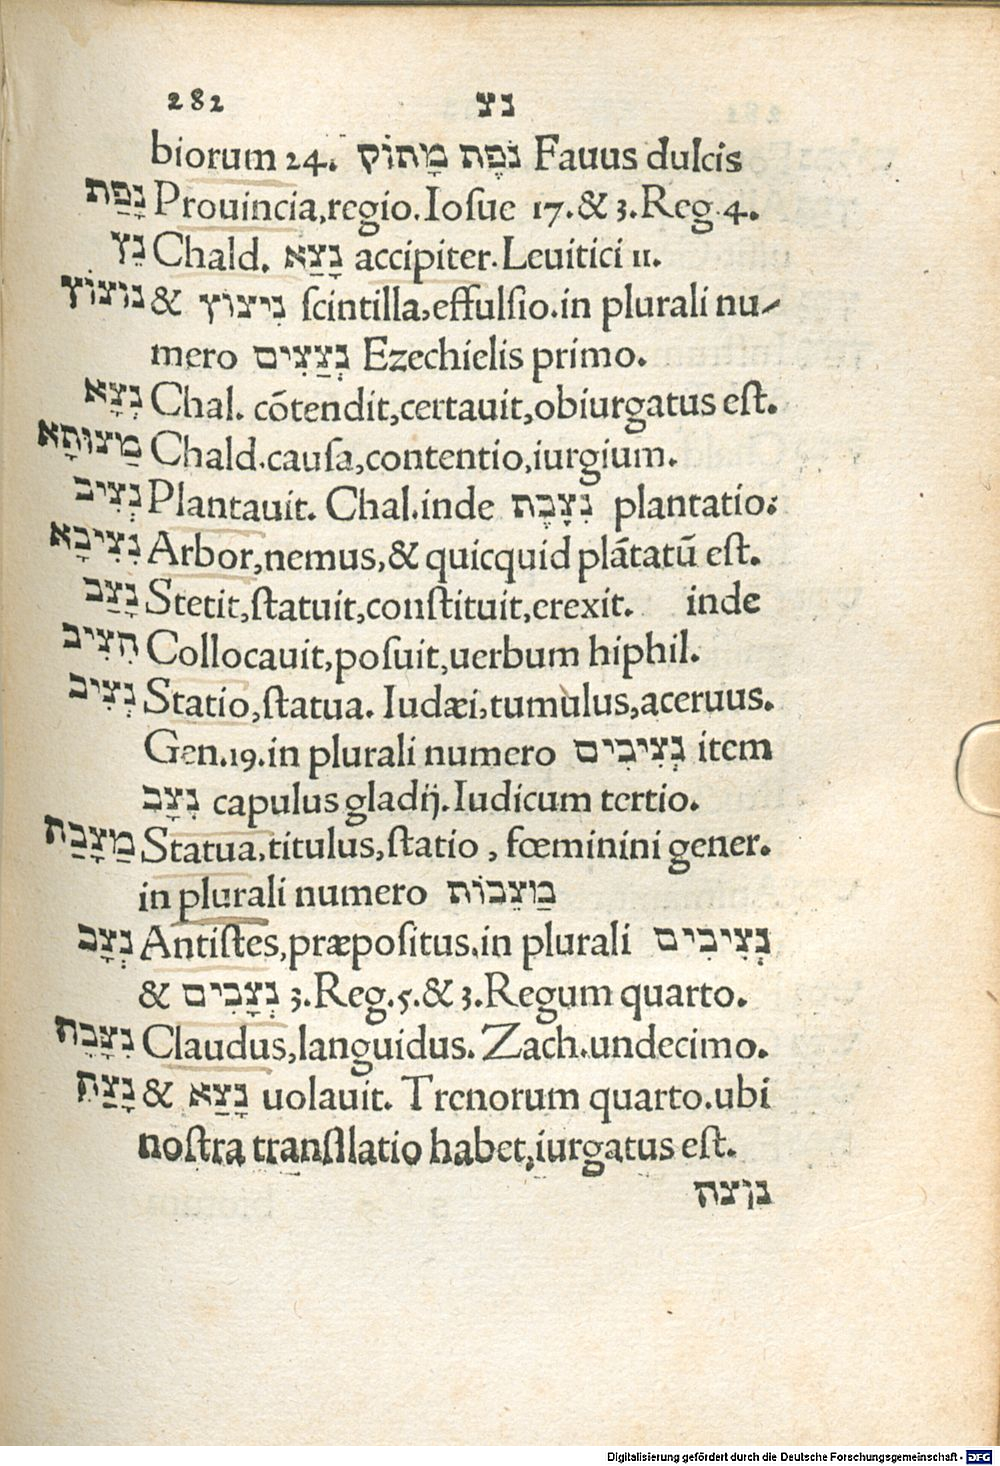 282 נצ
biorum 24. נֹפֶת מָתוֹק Fauus dulcis
נָפַת Prouincia,regio.Ioſue 17.& 3.Reg.4.
נֵץ Chald. נָצַא accipiter.Leuitici 11.
נוצוֹץ & נִיצוֹץ ſcintilla,effulſio.in plurali nu-
mero נְצַצִים Ezechielis primo.
נְצָא Chal. cõtendit,certauit,obiurgatus eſt.
מַצוּתָא Chald.cauſa,contentio,iurgium.
נְצִיב Plantauit. Chal.inde נִצָבֶת plantatio:
נִצִיבָא Arbor,nemus,& quicquid plãtatũ eſt.
נָצַב Stetit,ſtatuit,conſtituit,erexit. inde
הִצִיב Collocauit,poſuit,uerbum hiphil.
נְצִיב Statio,ſtatua. Iudæi,tumulus,aceruus.
Gen.19.in plurali numero נְצִיבִים item
נִצָב capulus gladij.Iudicum tertio.
מַצָבַת Statua,titulus,ſtatio , fœminini gener.
in plurali numero מַצֵבוֹת
נְצָב Antiſtes,præpoſitus.in plurali נְצִיבִים
& נְצָבִים 3.Reg.5.& 3.Regum quarto.
נִצָבָה Claudus,languidus. Zach.undecimo.
נָצַה & נָצַא uolauit. Trenorum quarto.ubi
noſtra tranſlatio habet,iurgatus eſt.
נוצה
Digitalisierung gefördert durch die Deutsche Forschungsgemeinschaft - DFG